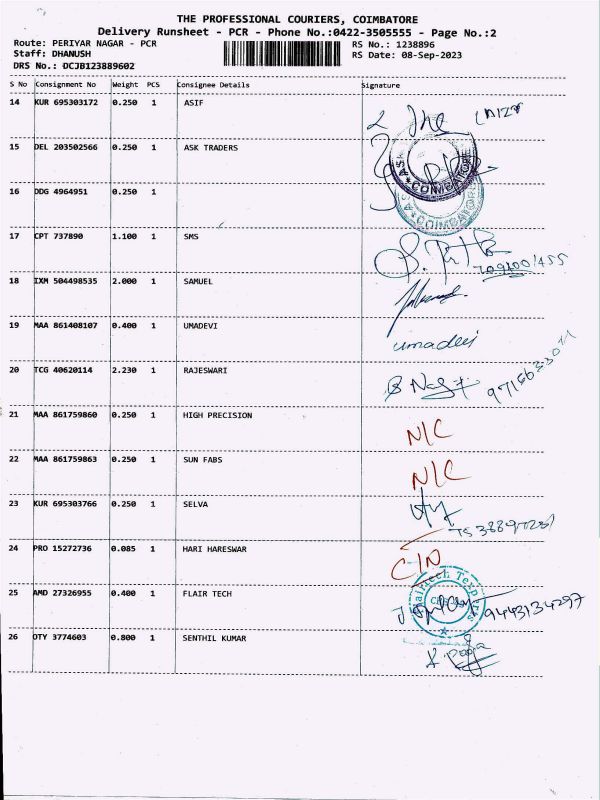 THE PROFESSIONAL COURIERS, COIMBATORE
Delivery Runsheet - PCR - Phone No.:0422-3505555 - Page No.:2
Route: PERIYAR NAGAR - PCR RS No.: 1238896
Staff: DHANUSH RS Date: 08-Sep-2023
DRS No.: DCJB123889602
S No Consignment No Weight PCS Consignee Details Signature
14 KUR 695303172 0.250 1 ASIF
15 DEL 203502566 0.250 1 ASK TRADERS
COIMBATORE
16 DDG 4964951 0.250 1
COIMBATORE
17 CPT 737890 1.100 1 SMS
18 IXM 504498535 2.000 1 SAMUEL
19 MAA 861408107 0.400 1 UMADEVI umadevi
20 TCG 40620114 2.230 1 RAJESWARI
21 MAA 861759860 0.250 1 HIGH PRECISION N/C
22 MAA 861759863 0.250 1 SUN FABS N/C
23 KUR 695303766 0.250 1 SELVA
24 PRO 15272736 0.085 1 HARI HARESWAR C/N
25 AMD 27326955 0.400 1 FLAIR TECH 9443134297
26 OTY 3774603 0.800 1 SENTHIL KUMAR